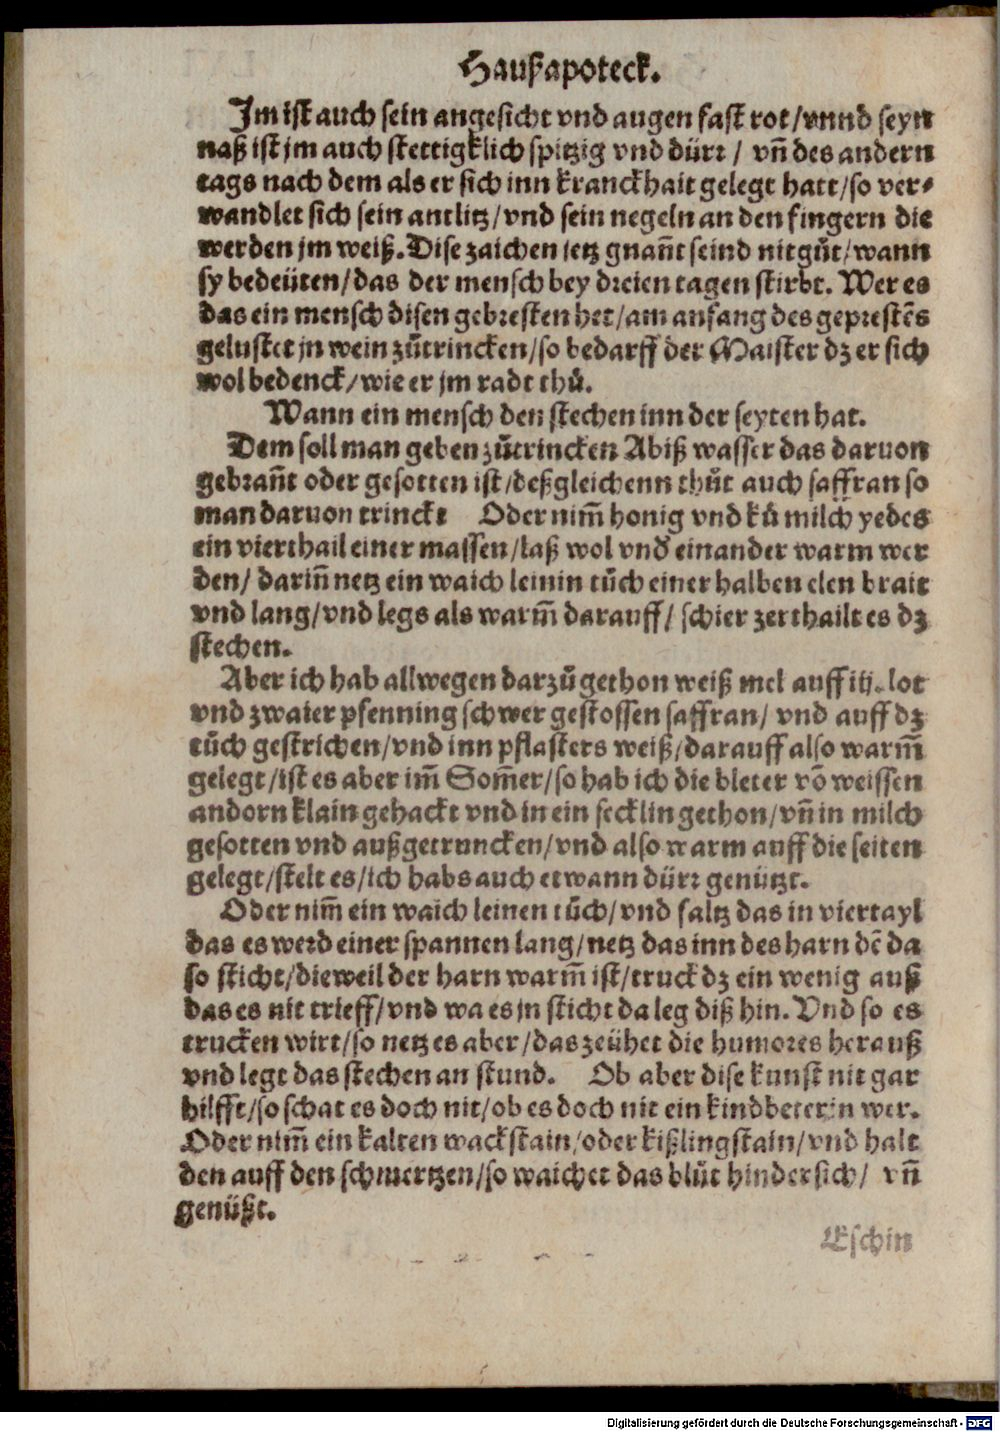 Haußapoteck.
Im ist auch sein angesicht vnd augen fast rot/vnnd seyn
naß ist jm auch stettigklich spitzig vnd dürr/ vn̄ des andern
tags nach dem als er sich inn kranckhait gelegt hatt/so ver⸗
wandlet sich sein antlitz/vnd sein negeln an den fingern die
werden jm weiß. Dise zaichen jetz gnan̄t seind nit gůt/wann
sy bedeüten/das der mensch bey dreien tagen stirbt. Wer es
das ein mensch disen gebresten het/am anfang des geprestēs
gelustet jn wein zůtrincken/so bedarff der Maister dz er sich
wol bedenck/wie er jm radt thů.
Wann ein mensch den stechen inn der seyten hat.
Dem soll man geben zůtrincken Abiß wasser das daruon
gebran̄t oder gesotten ist/deßgleichenn thůt auch saffran so
man daruon trinckt Oder nim̄ honig vnd ků milch yedes
ein vierthail einer massen/laß wol vnd einander warm wer
den/ darin̄ netz ein waich leinin tůch einer halben elen brait
vnd lang/vnd legs als warm̄ darauff/ schier zerthailt es dz
stechen.
Aber ich hab allwegen darzů gethon weiß mel auff iij. lot
vnd zwaier pfenning schwer gestossen saffran/ vnd auff dz
tůch gestrichen/vnd inn pflasters weiß/darauff also warm̄
gelegt/ist es aber im̄ Som̄er/so hab ich die bleter vō weissen
andorn klain gehackt vnd in ein secklin gethon/vn̄ in milch
gesotten vnd außgetruncken/vnd also warm auff die seiten
gelegt/stelt es/ich habs auch etwann dürr genützt.
Oder nim̄ ein waich leinen tůch/vnd faltz das in viertayl
das es werd einer spannen lang/netz das inn des harn dē da
so sticht/dieweil der harn warm̄ ist/truck dz ein wenig auß
das es nit trieff/vnd wa es jn sticht da leg diß hin. Vnd so es
trucken wirt/so netz es aber/das zeühet die humores herauß
vnd legt das stechen an stund. Ob aber dise kunst nit gar
hilfft/so schat es doch nit/ob es doch nit ein kindbeterin wer.
Oder nim̄ ein kalten wackstain/oder kißlingstain/vnd halt
den auff den schmertzen/so waichet das blůt hindersich/ vn̄
genüßt.
Eschin
Digitalisierung gefördert durch die Deutsche Forschungsgemeinschaft - DFG